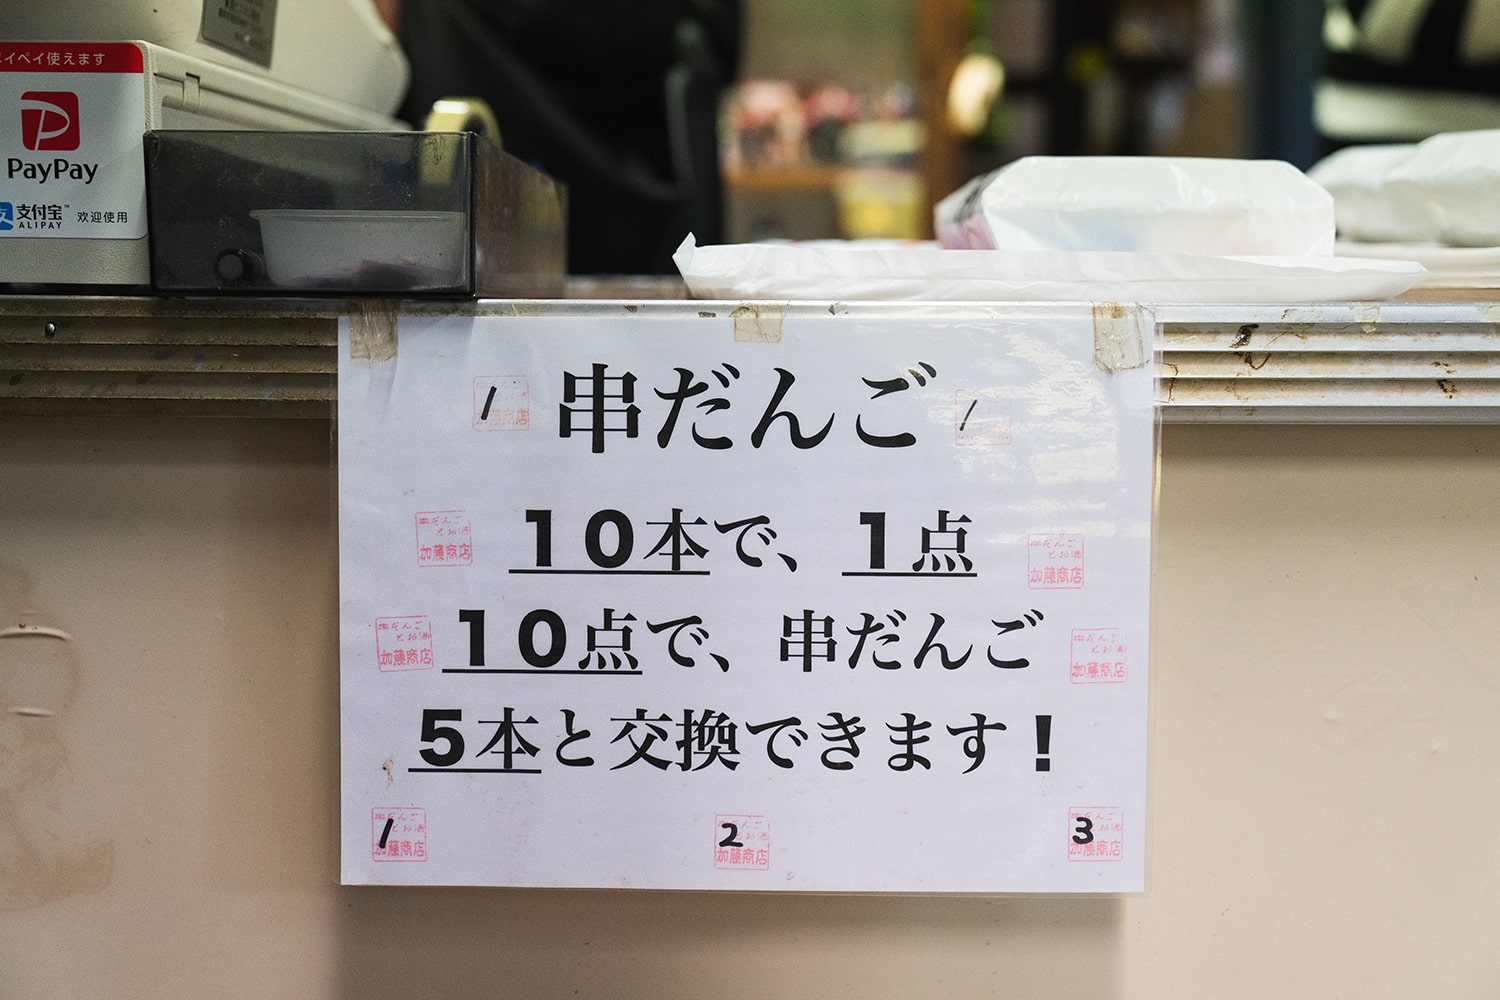 ペイペイ使えます
PayPay
支付宝™
ALIPAY
欢迎使用
串だんご
1
加藤商店
1
10本で、1点
串だんご
とお酒
加藤商店
串だんご
とお酒
加藤商店
10点で、串だんご
串だんご
とお酒
加藤商店
串だんご
とお酒
加藤商店
5本と交換できます!
1
串だんご
とお酒
加藤商店
2
串だんご
とお酒
加藤商店
3
串だんご
とお酒
加藤商店